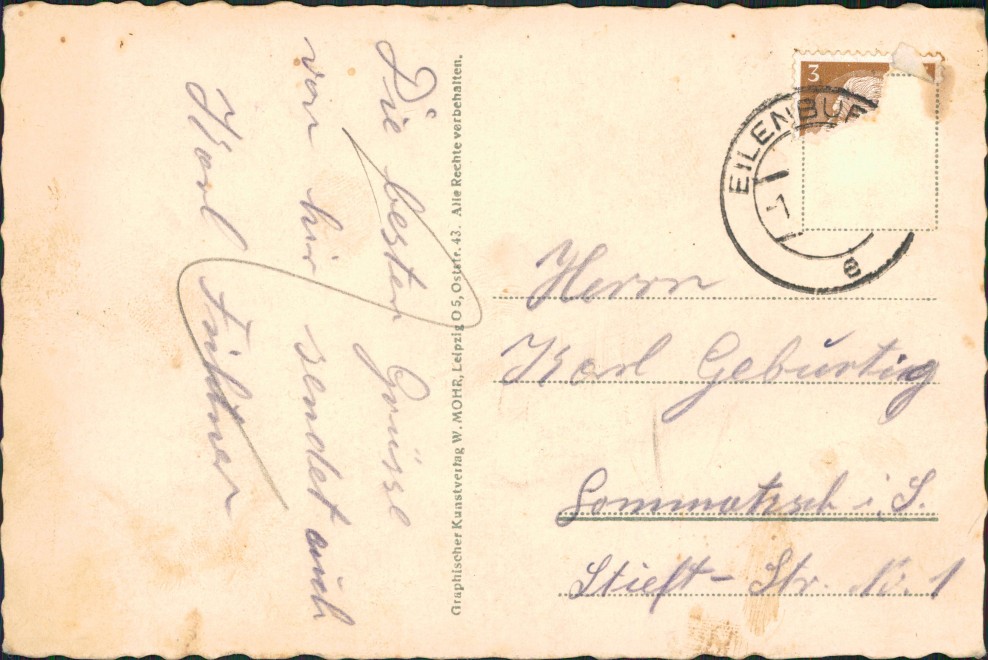 Die besten Grüsse
von hir sendet auch
Karl Fichtner
Graphischer Kunstverlag W. MOHR, Leipzig O 5, Oststr. 43. Alle Rechte vorbehalten.
3
EILENBUR
1
e
Herrn
Karl Geburtig
Lommatzsch i. S.
Stieft-Str. No. 1